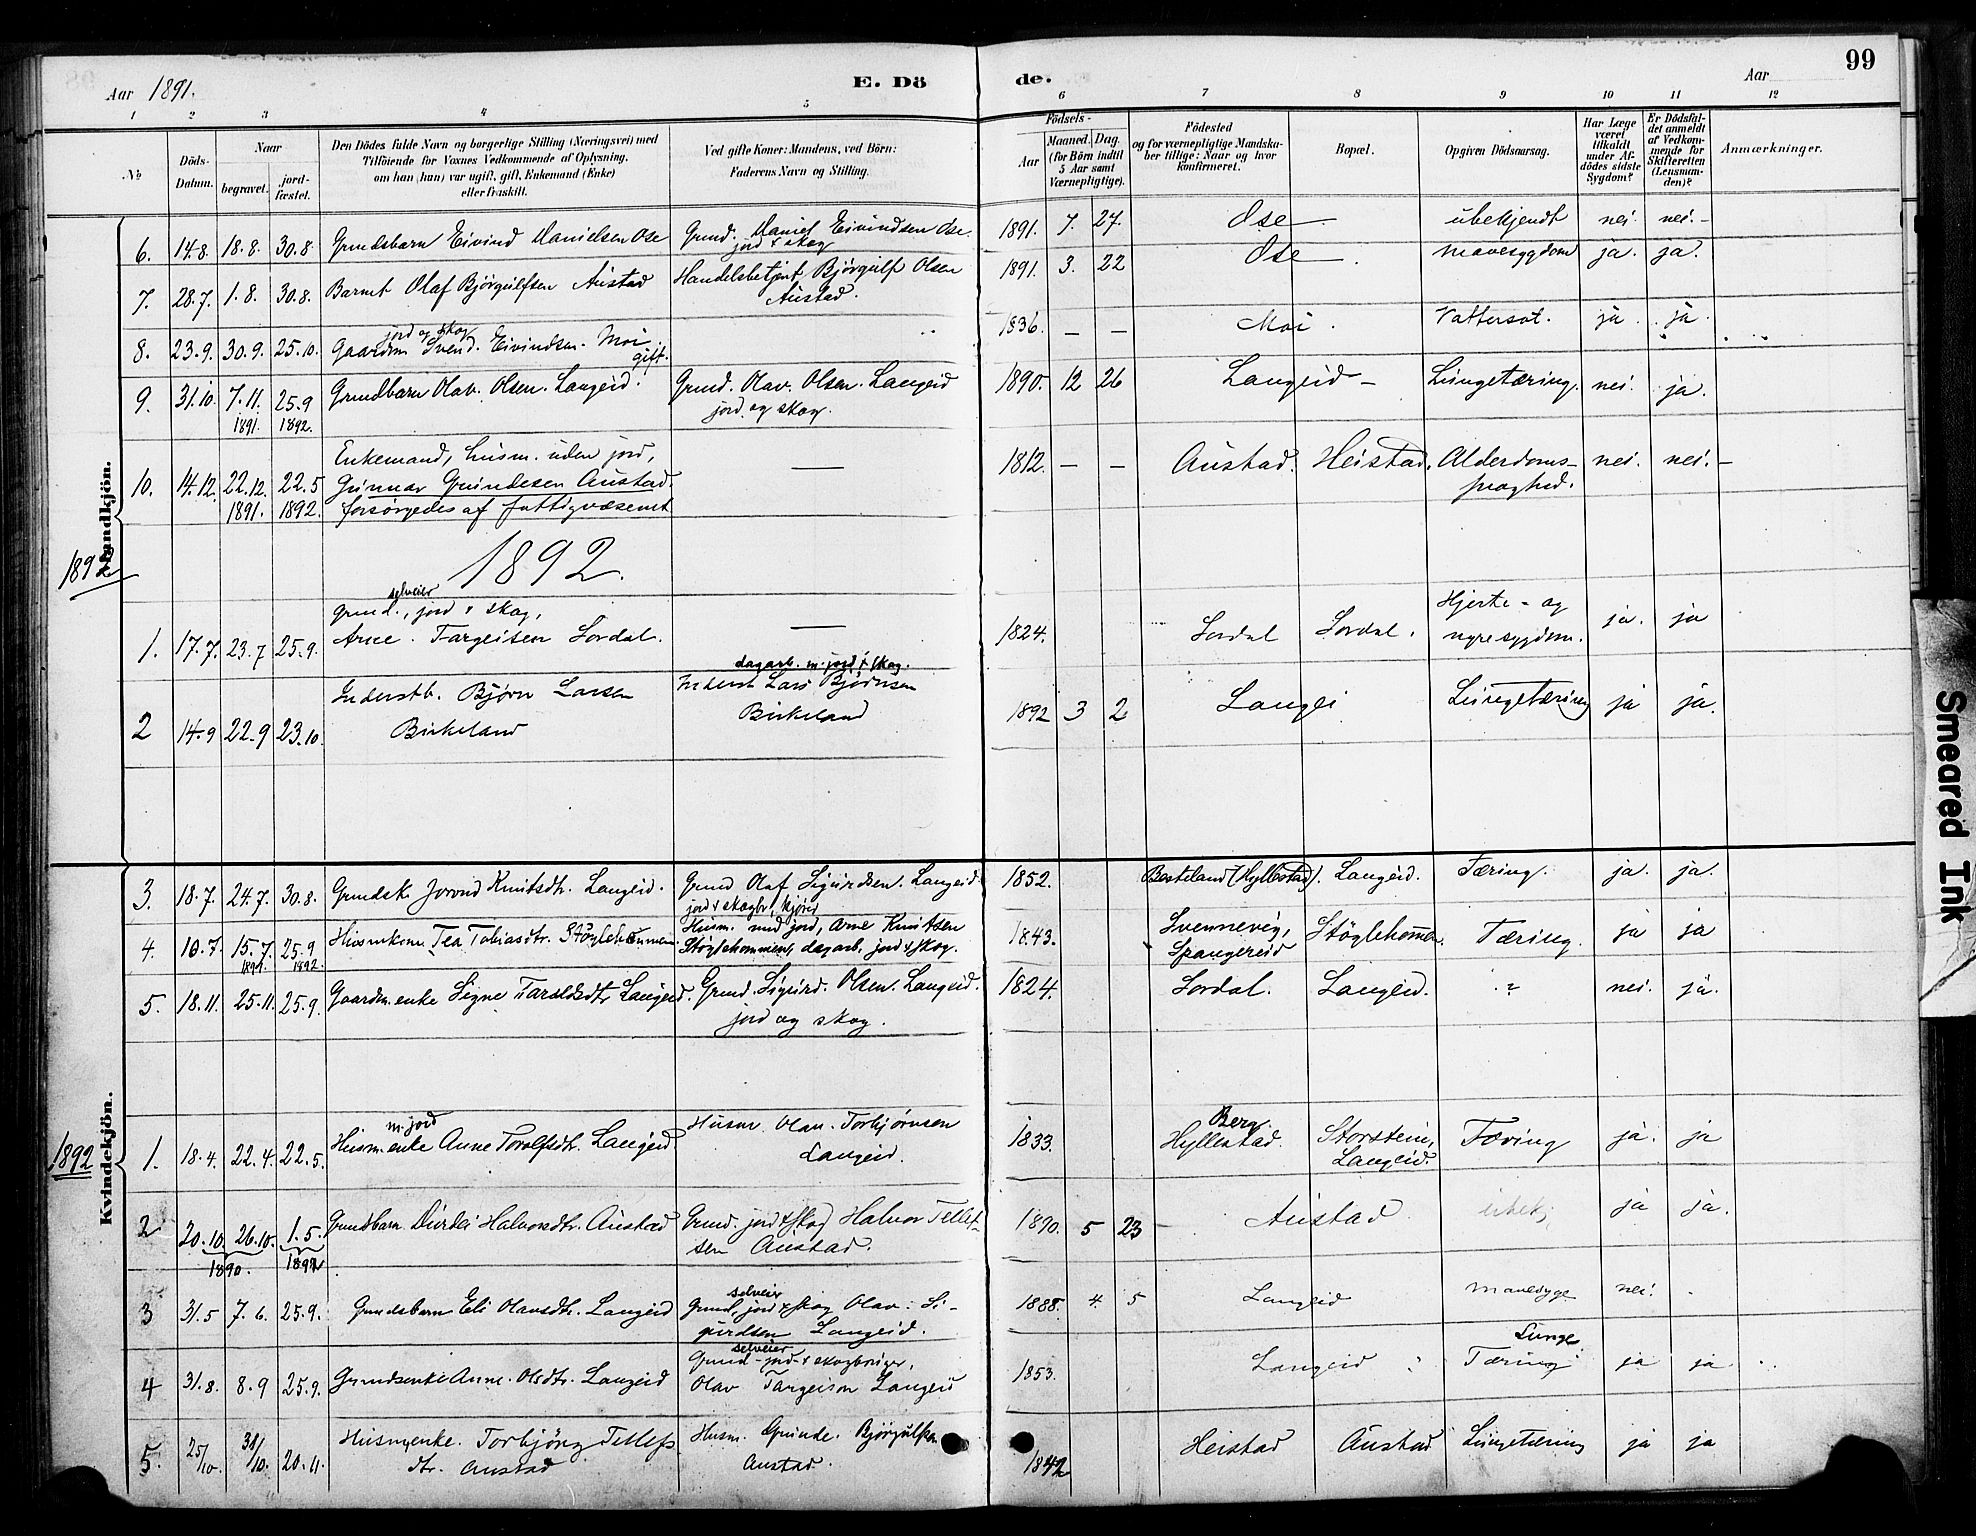 99
Aar 1891.
E. Dö
de.
Aar
1 2 3 4 5 6 7 8 9 10 11 12
No
Döds-Datum.
Naar
begravet.
jord-fæstet.
Den Dödes fulde Navn og borgerlige Stilling (Næringsvei) med
Tilföiende for Voxnes Vedkommende af Oplysning,
om han (hun) var ugift, gift, Enkemand (Enke)
eller fraskilt.
Ved gifte Koner: Mandens, ved Börn:
Faderens Navn og Stilling.
Födsels-
Aar
Maaned. Dag.
(for Börn indtil
5 Aar samt
Værnepligtige).
Födested
og for værnepligtige Mandska-
ber tillige: Naar og hvor
konfirmeret.
Bopæl.
Opgiven Dödsaarsag.
Har Læge
været
tilkaldt
under Af-
dödes sidste
Sygdom?
Er Dödsfal-
det anmeldt
af Vedkom-
mende for
Skifteretten
(Lensman-
den)?
Anmærkninger.
Mandkjön.
6. 14.8. 18.8. 30.8. Grundsbarn Eivind Danielsen Ose Grund. Daniel Eivindsen Ose. 1891. 7. 27. Ose ubekjendt nei. nei. -
jord & skog
7. 28.7. 1.8. 30.8. Barnet Olaf Bjørgulfsen Austad Handelsbetjent Bjørgulf Olsen 1891. 3. 22 Ose mavesygdom ja. ja.
Austad.
jord og skog
8. 23.9. 30.9. 25.10. Gaardm. Svend. Eivindsen. Moi 1836. - - Moi. Vattersot. ja. ja.
gift.
9. 31.10. 7.11. 25.9 Grundbarn Olav. Olsen. Langeid. Grund. Olav. Olsen. Langeid 1890. 12 26 Langeid - Lungetæring. nei. ja.
1891. 1892. jord og skog.
Enkemand, husm. uden jord,
10. 14.12. 22.12. 22.5 Gunnar Gundesen Austad. — 1812. - - Austad. Heistad. Alderdoms- nei. nei. -
1891. 1892. forsørgedes af fattigvæsenet
1892
1892.
selveier
Grund., jord & skog,
1. 17.7. 23.7 25.9. Arne. Targeisen Lordal. — 1824. Lordal Lordal. Hjerte- og ja. ja
nyresygdom.
dagarb. m. jord & skog.
2 14.9 22.9 23.10. Inderstb. Bjørn Larsen Inderst Lars Bjørnsen 1892 3 2 Langei Lungetæring ja ja.
Birkeland Birkeland
Kvindekjön.
3. 18.7. 24.7. 30.8. Grundsk. Jorond Knutsdtr. Langeid. Grund Olaf Sigurdsen. Langeid. 1852. Besteland (Hyllestad). Langeid. Tæring. ja. ja.
jord & skogbr,
4. 10.7. 15.7. 25.9 Husmkone Tea Tobiasdtr. Støglehommen. Husm. med jord, Arne Knutsen 1843. Svennevig, Støglehommen. Tæring. ja ja
1891. 1892. Støglehommen, dagarb. jord & skog. Spangereid
5. 18.11. 25.11. 25.9. Gaardm.enke Signe Taraldsdtr Langeid. Grund. Sigurd. Olsen. Langeid. 1824. Lordal. Langeid. ? nei. ja.
jord og skog.
1892
m. jord
1. 18.4. 22.4. 22.5. Husm.enke Anne Torolfsdtr. Langeid Husm Olav. Torbjørnsen 1833. Berg. Hyllestad. Storstein, Tæring ja. ja
Langeid. Langeid.
2 20.10. 26.10. 1.5. Grundbarn. Halvorsdtr. Austad Grund. jord & skog Halvor Tellef- 1890. 5 23 Austad ubekj. ja ja.
1890. 1892 sen Austad.
selveier
3 31.5 7.6. 25.9. Grundsbarn Eli Olavsdtr. Langeid Grund, jord & skog Olav. Si- 1888. 4. 5 Langeid mavesyge nei.
gurdsen Langeid.
selveier
4 31.8. 8.9 25.9. Grundsenke Anne. Olsdtr. Langeid Grund- jord- & skogbruger, 1853. Langeid Lunge Tæring ja ja
Olav Targeisen Langeid
5 25/10. 30/10. 20.11. Husmenke. Torbjörg Tellefs Husm. Gunde. Bjørgulfsen 1842 Heistad Austad Lungetæring ja ja
dtr. Austad Austad.
Smeared Ink